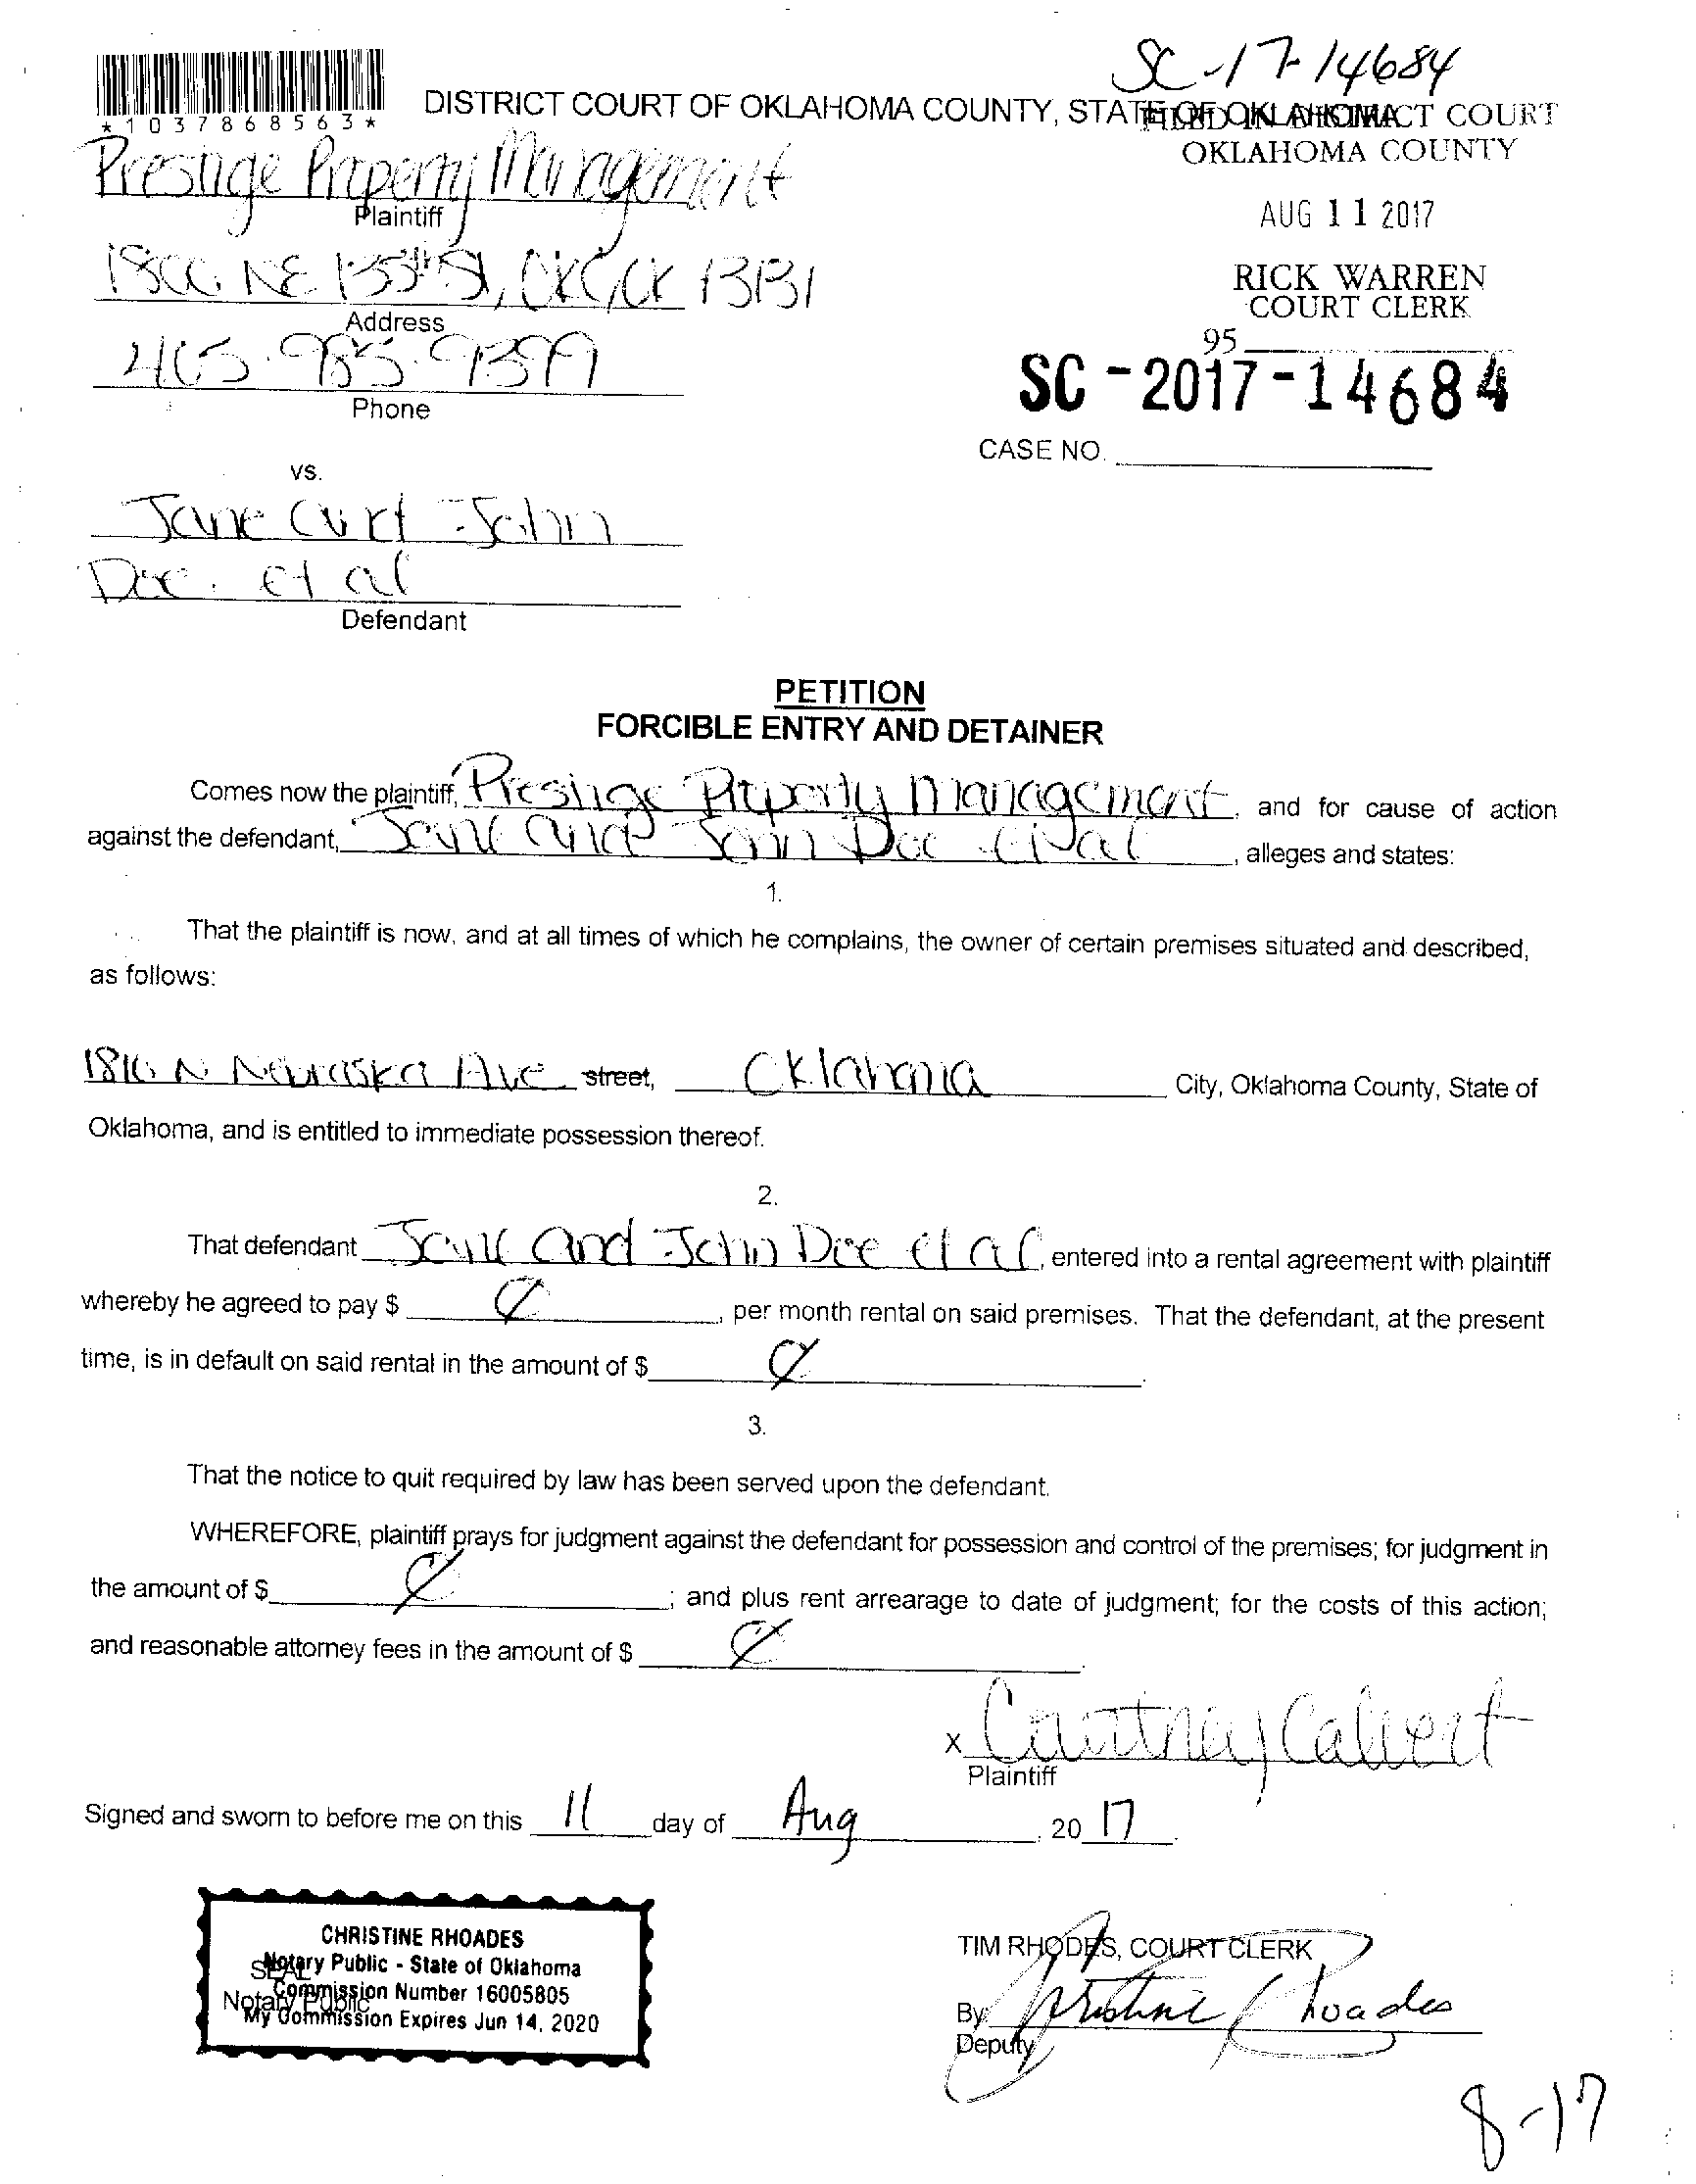 SC-17-14684
*1037868563*
DISTRICT COURT OF OKLAHOMA COUNTY, STATE OF OKLAHOMA
FILED IN DISTRICT COURT
OKLAHOMA COUNTY
Prestige Property Management
Plaintiff
AUG 11 2017
RICK WARREN
COURT CLERK
95
NE 135th St, OKC, OK 73131
Address
405.985.9399
Phone
SC-2017-14684
CASE NO.
vs.
Jane and John
Doe et al
Defendant
PETITION
FORCIBLE ENTRY AND DETAINER
Comes now the plaintiff, Prestige Property Management, and for cause of action
against the defendant, Jane and John Doe et al, alleges and states:
1.
That the plaintiff is now, and at all times of which he complains, the owner of certain premises situated and described,
as follows:
1816 N Nebraska Ave street, Oklahoma City, Oklahoma County, State of
Oklahoma, and is entitled to immediate possession thereof.
2.
That defendant Jane and John Doe et al, entered into a rental agreement with plaintiff
whereby he agreed to pay $ Ø, per month rental on said premises. That the defendant, at the present
time, is in default on said rental in the amount of $ Ø.
3.
That the notice to quit required by law has been served upon the defendant.
WHEREFORE, plaintiff prays for judgment against the defendant for possession and control of the premises; for judgment in
the amount of $ Ø; and plus rent arrearage to date of judgment; for the costs of this action;
and reasonable attorney fees in the amount of $ Ø.
x Courtney Calvert
Plaintiff
Signed and sworn to before me on this 11 day of Aug, 20 17.
CHRISTINE RHOADES
Notary Public - State of Oklahoma
Commission Number 16005805
My Commission Expires Jun 14, 2020
SEAL
Notary Public
TIM RHODES, COURT CLERK
By Christine Rhoades
Deputy
8-17